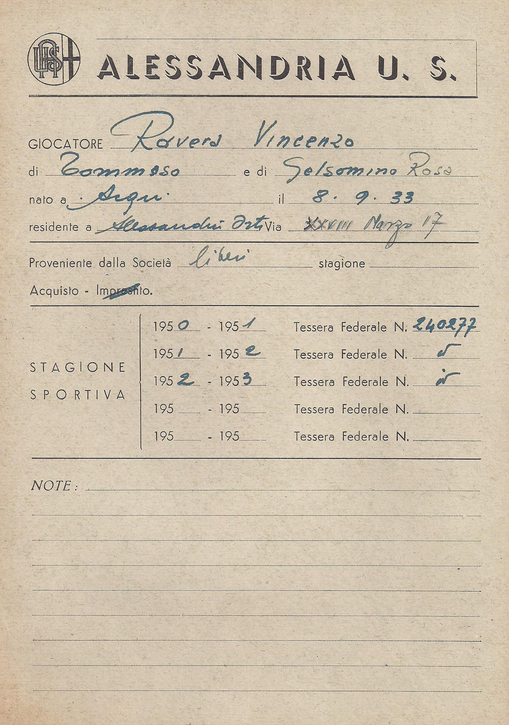 ALESSANDRIA U. S.
GIOCATORE Ravera Vincenzo
di Tommaso e di Gelsomino Rosa
nato a Acqui il 8. 9. 33
residente a Alessandria Via XXVIII Marzo 17
Proveniente dalla Società liberi stagione
Acquisto - Imprestito.
STAGIONE SPORTIVA
1950 - 1951 Tessera Federale N. 240277
1951 - 1952 Tessera Federale N.
1952 - 1953 Tessera Federale N.
195 - 195 Tessera Federale N.
195 - 195 Tessera Federale N.
NOTE: